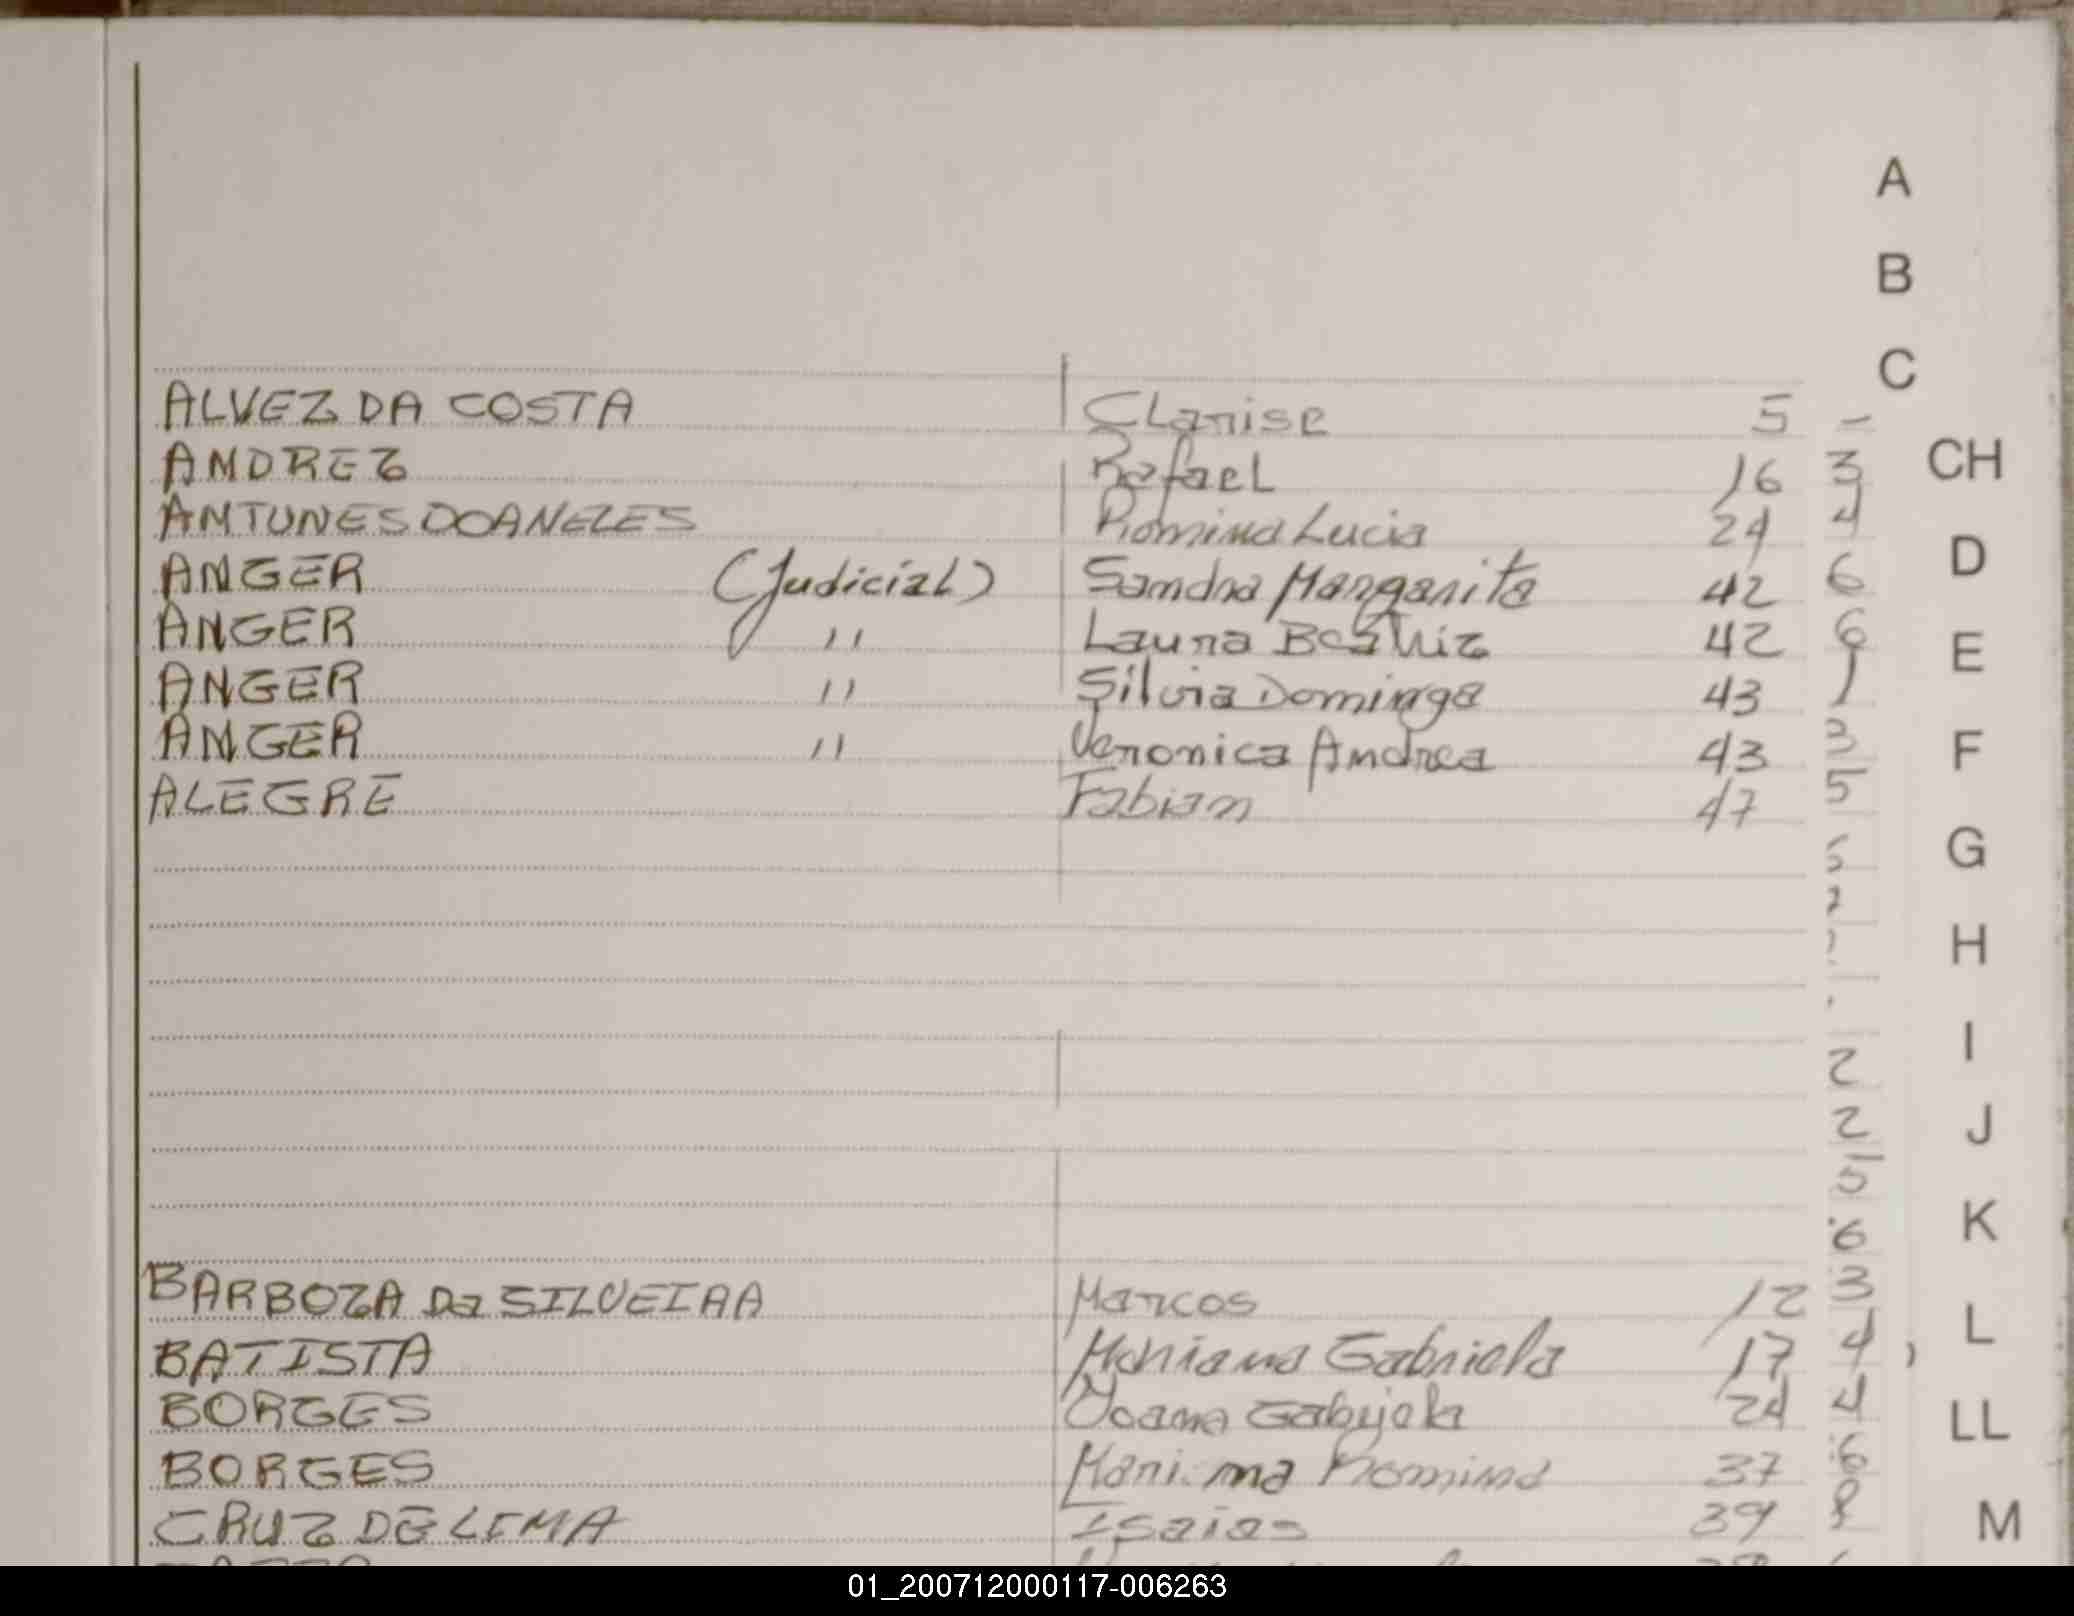 A
B
C
ALVEZ DA COSTA Clarise 5
ANDREZ Rafael 16 3
CH
ANTUNES DOANELES Romina Lucia 24 4
D
ANGER (Judicial) Sandra Margarita 42 6
ANGER " Laura Beatriz 42 6
E
ANGER " Silvia Dominga 43
ANGER " Veronica Andrea 43 3
F
ALEGRE Fabian 47 5
G
H
I
2
J
2
5
K
6
BARBOZA Da SILVEIRA Marcos 12 3
L
BATISTA Mariana Gabriela 17 4
BORGES Joana 24 4
LL
BORGES Romina 37 6
CRUZ DE LIMA Isaias 39 8
M
01_200712000117-006263